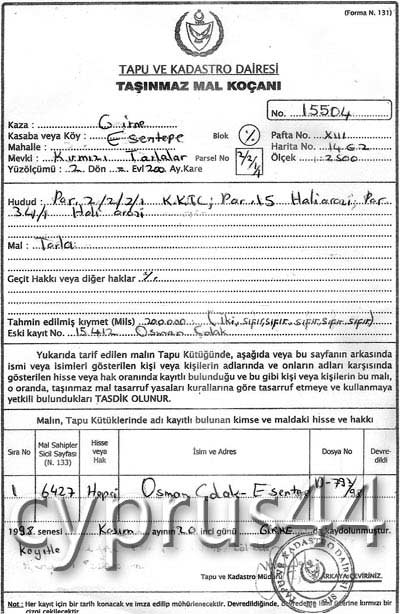 (Forma N. 131)
TAPU VE KADASTRO DAİRESİ
TAŞINMAZ MAL KOÇANI
No. 15504
Kaza : Girne
Kasaba veya Köy : Esentepe
Blok
Pafta No. XIII
Mahalle :
Harita No. 14.G2
Mevki : Kırmızı Tarlalar
Parsel No 2/2/4
Ölçek 2500
Yüzölçümü : 2 Dön Evl 200 Ay.Kare
Hudud : Par. 2/2/2/1 K.K.T.C; Par. 15 Hali arazi, Par
34/1 Hali arazi
Mal : Tarla
Geçit Hakkı veya diğer haklar
Tahmin edilmiş kıymet (Mils) 200.000 (İki, sıfır, sıfır, sıfır, sıfır, sıfır)
Eski kayıt No. 15412 Osman Çolak
Yukarıda tarif edilen malın Tapu Kütüğünde, aşağıda veya bu sayfanın arkasında
ismi veya isimleri gösterilen kişi veya kişilerin adlarında ve onların adları karşısında
gösterilen hisse veya hak oranında kayıtlı bulunduğu ve bu gibi kişi veya kişilerin bu malı,
o oranda, taşınmaz mal tasarruf yasaları kurallarına göre tasarruf etmeye ve kullanmaya
yetkili bulundukları TASDİK OLUNUR.
Malın, Tapu Kütüklerinde adı kayıtlı bulunan kimse ve maldaki hisse ve hakkı
Sıra No
Mal Sahipler Sicil Sayfası (N. 133)
Hisse veya Hak
İsim ve Adres
Dosya No
Devredildi
1 6427 Hepsi Osman Çolak - Esentepe
1998 senesi Kasım ayının 20 inci günü GİRNE da kaydolunmuştur.
Kayıtle
cyprus44
TAPU VE KADASTRO DAİRESİ
Tapu ve Kadastro Müdürü
ARKAYA ÇEVİRİNİZ.
Not : Her kayıt için bir tarih konacak ve imza edilip mühürlenecektir. Devredildiğinde, Devredildi ismi üzerine kırmızı bir
çizgi çekilecektir.